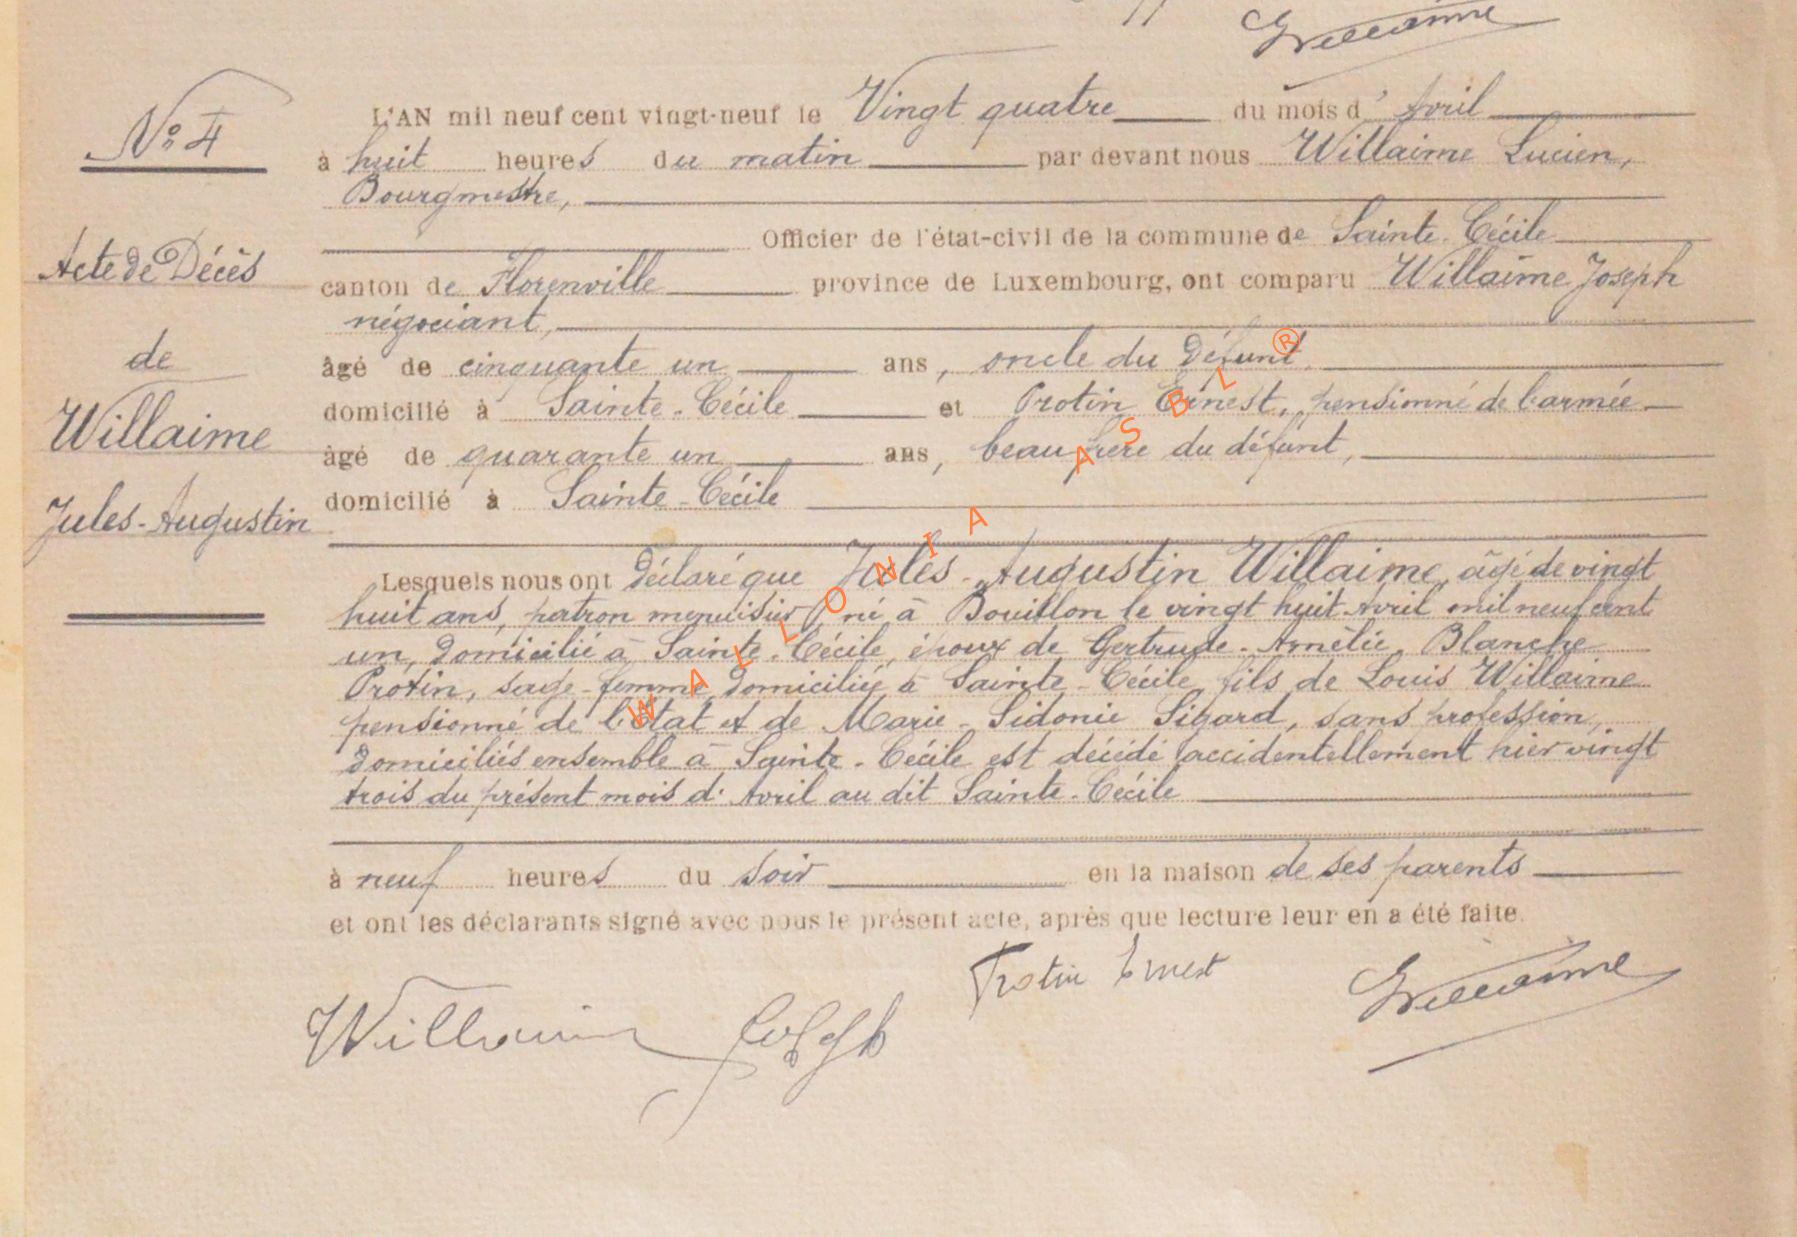 Willaime
N° 4
Acte de Décès
de
Willaime
Jules-Augustin
L'AN mil neuf cent vingt-neuf le Vingt quatre du mois d' Avril
à huit heures du matin par devant nous Willaime Lucien,
Bourgmestre,
Officier de l'état-civil de la commune de Sainte-Cécile
canton de Florenville province de Luxembourg, ont comparu Willaime Joseph
négociant,
âgé de cinquante un ans, oncle du défunt,
domicilié à Sainte-Cécile et Protin Ernest, pensionné de l'armée
âgé de quarante un ans, beau frère du défunt,
domicilié à Sainte-Cécile
Lesquels nous ont déclaré que Jules-Augustin Willaime, âgé de vingt
huit ans, patron menuisier, né à Bouillon le vingt huit Avril mil neuf cent
un, domicilié à Sainte-Cécile, époux de Gertrude-Amélie Blanche
Protin, sage-femme domiciliée à Sainte-Cécile fils de Louis Willaime
pensionné de l'Etat et de Marie-Sidonie Sigard, sans profession,
domiciliés ensemble à Sainte-Cécile est décédé accidentellement hier vingt
trois du présent mois d'Avril au dit Sainte-Cécile
à neuf heures du soir en la maison de ses parents
et ont les déclarants signé avec nous le présent acte, après que lecture leur en a été faite.
Willaime Joseph Protin Ernest Willaime
WALLONIA ASBL ®